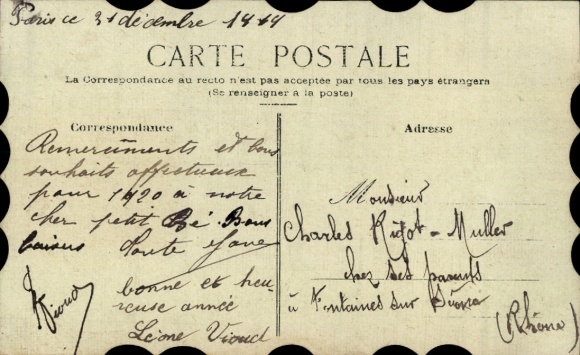 Paris ce 31 décembre 1919
CARTE POSTALE
La Correspondance au recto n'est pas acceptée par tous les pays étrangers
(Se renseigner à la poste)
Correspondance
Remerciments et bons
souhaits affectueux
pour 1920 à notre
cher petit Bé Bons
baisers
bonne et heu-
reuse année
Léone Vioud
Vioud
Adresse
Monsieur
Charles Rigot-Muller
chez ses parents
à Fontaines sur Saône
(Rhône)